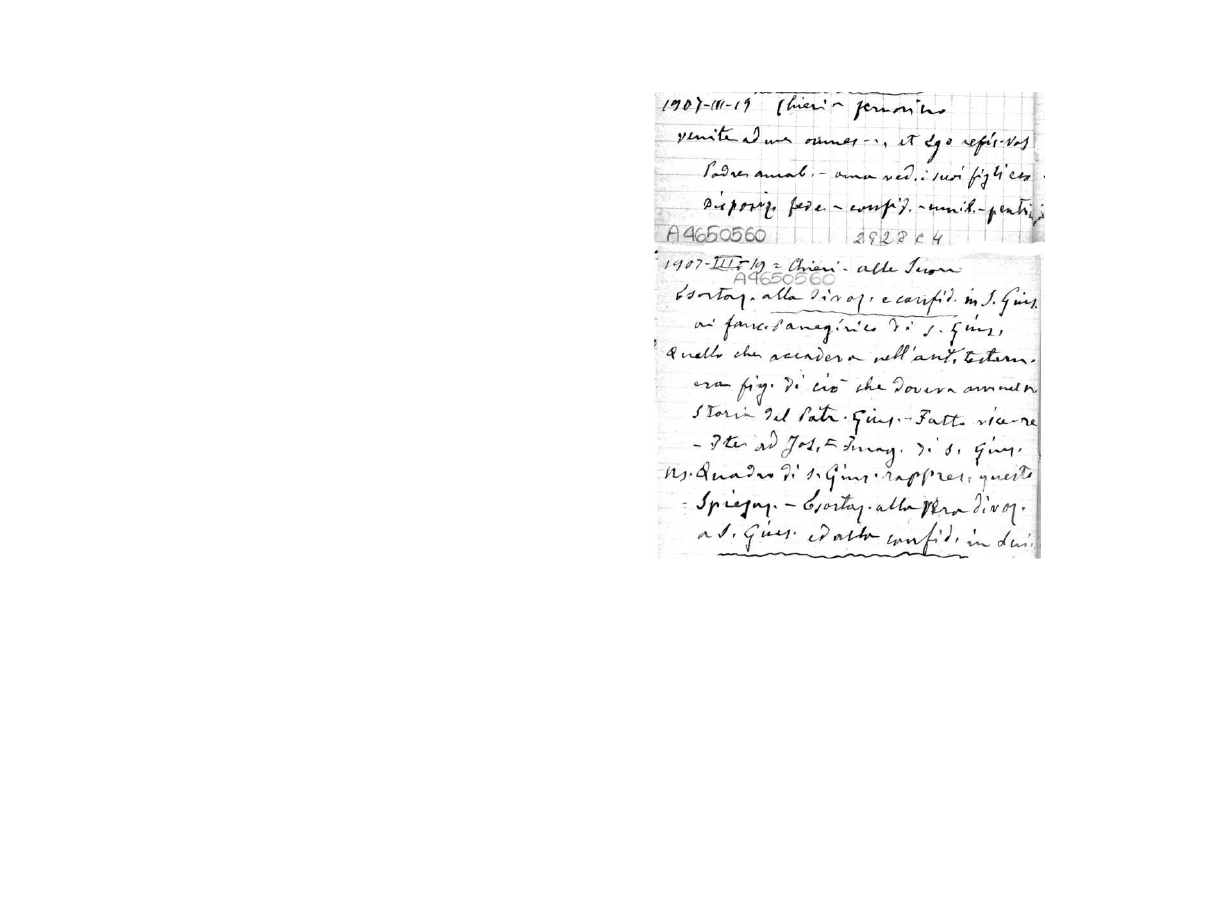 1907-III-19 Chieri - fervorino
venite ad me omnes - ., et Ego refic. vos
Padre amab. - ama ved. i suoi figli
Disposiz. fede - confid. - umil. -
A4650560 2928 C 4
1907-III-19 = Chieri - alle Suore
A4650560
Esortaz. alla divoz. e confid. in S. Gius.
panegirico di S. Gius.
Quello che accadeva nell'ant. testam.
era fig. di ciò che doveva avv. nel n
Storia del Patr. Gius. - Fatto vice-re
- Ite ad Jos. = Imag. di S. Gius.
ns. Quadro di S. Gius. rappres. questo
- Spiegaz. - Esortaz. alla vera divoz.
a S. Gius. ed alla confid. in Lui.